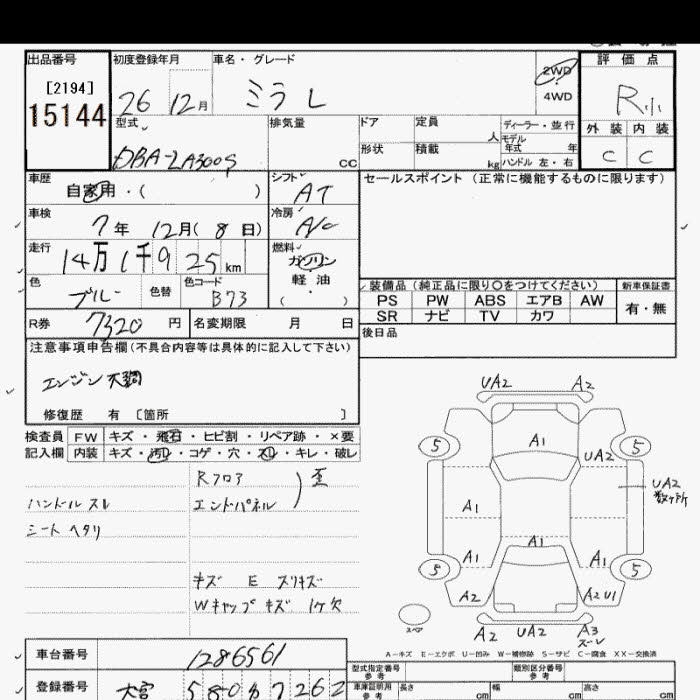 出品番号 初度登録年月 車名・グレード 評価点
[2194] 2WD
15144 26 12月 ミラ L 4WD R小
型式 排気量 ドア 定員 人 ディーラー・並行 外装 内装
モデル年式 年
DBA-LA300S CC 形状 積載 kg ハンドル 左・右 C C
車歴 シフト セールスポイント (正常に機能するものに限ります)
自家用・( ) AT
車検 冷房
7年 12月(8日) A/C
走行 燃料
14万1千925km ガソリン
色 色替 色コード 軽油
ブルー B73 ( ・ )
装備品 (純正品に限り○をつけてください) 新車保証書
PS PW ABS エアB AW 有・無
SR ナビ TV カワ
R券 7320円 名変期限 月 日
後日品
注意事項申告欄(不具合内容等は具体的に記入して下さい)
エンジン不調
修復歴 有 〔箇所 〕
検査員 FW キズ・飛石・ヒビ割・リペア跡・×要
記入欄 内装 キズ・汚レ・コゲ・穴・スレ・キレ・破レ
Rフロア
エンドパネル ) 歪
ハンドルスレ
シートヘタリ
キズ E スリキズ
Wキャップキズ 1ケ欠
UA2 A2
5 A1 5
UA2
UA2
数ヶ所
A1
A1 A1 A1
5 5
A2 A2U1
スペア
A2 UA2 A3
ズレ
A-キズ E-エクボ U-凹み W-補修跡 S-サビ C-腐食 XX-交換済
車台番号 1286561
型式指定番号 参考 類別区分番号 参考
登録番号 大宮 580 7262
車庫証明用 参考 長さ cm 幅 cm 高さ cm